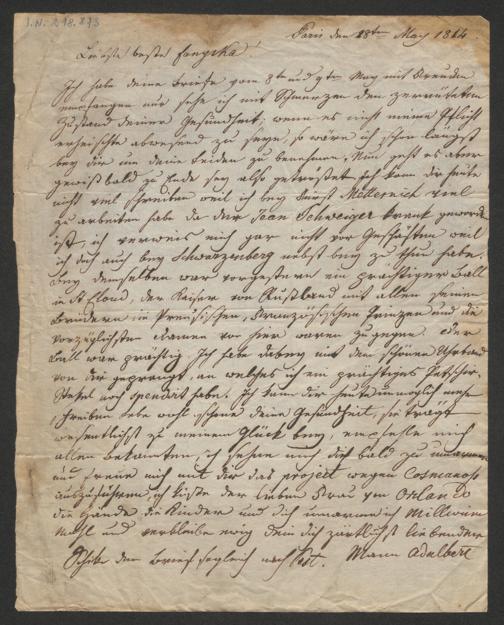 I.N. 218.273
Paris den 18ten May 1814
Liebste beste Fanyska!
Ich habe deine Briefe vom 8ten und 9ten May mit Freuden
empfangen nur sehe ich mit Schmerzen den zerrütteten
Zustand deiner Gesundheit, wenn es nicht meine Pflicht
erheischte abwesend zu seyn, so wäre ich schon längst
bey dir um deine Leiden zu benehmen. Nun geht es aber
gewiß bald zu Ende sey also getröstet ich kann dir heute
nicht viel schreiben weil ich bey Fürst Metternich viel
zu arbeiten habe da der Jean Schweiger krank geworden
ist, ich weiß mich gar nicht vor Geschäften weil
ich doch auch bey Schwarzenberg nebst bey zu thun habe.
Bey demselben war vorgestern ein prächtiger Ball
in St Cloud, der Kaiser von Rußland mit allen seinen
Brüdern die Preußischen, Französischen Prinzen und die
vorzüglichsten Damen von hier waren zugegen. Der
Ball war prächtig Ich habe dabey mit dem schönen Uhrband
von dir geprangt, an welches ich ein prächtiges Petscher
Stekel noch spendirt habe. Ich kann dir heute unmöglich mehr
schreiben lebe wohl schone deine Gesundheit, sie trägt
wesentlichst zu meinem Glück bey, empfehle mich
allen Bekannten, ich sehne mich dich bald zu umarmen
und freue mich mit dir das project wegen Cosmanos
auszuführen, ich küsse der lieben Frau von Orlando
die Hände die Kinder und dich umarme ich Millionen
mahl und verbleibe ewig dein dich zärtlichst liebender
Schike den Brief sogleich nach Pest. Mann Adalbert